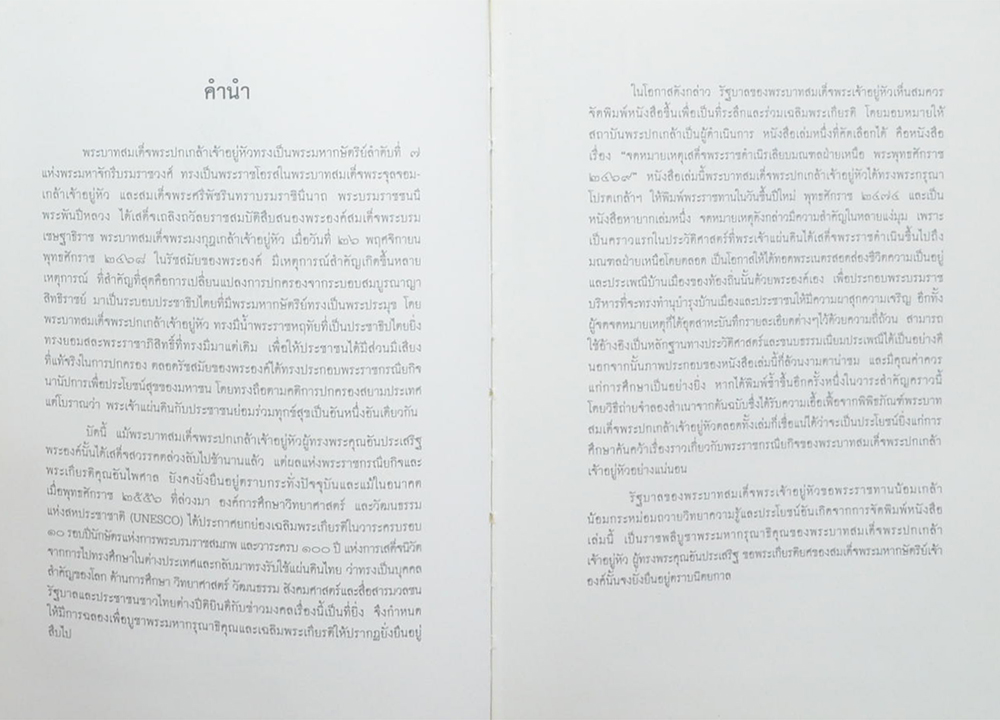 คำนำ
พระบาทสมเด็จพระปกเกล้าเจ้าอยู่หัวทรงเป็นพระมหากษัตริย์ลำดับที่ ๗
แห่งพระมหาจักรีบรมราชวงศ์ ทรงเป็นพระราชโอรสในพระบาทสมเด็จพระจุลจอม-
เกล้าเจ้าอยู่หัว และสมเด็จพระศรีพัชรินทราบรมราชินีนาถ พระบรมราชชนนี
พระพันปีหลวง ได้เสด็จเถลิงถวัลยราชสมบัติสืบสนองพระองค์สมเด็จพระบรม
เชษฐาธิราช พระบาทสมเด็จพระมงกุฎเกล้าเจ้าอยู่หัว เมื่อวันที่ ๒๖ พฤศจิกายน
พุทธศักราช ๒๔๖๘ ในรัชสมัยของพระองค์ มีเหตุการณ์สำคัญเกิดขึ้นหลาย
เหตุการณ์ ที่สำคัญที่สุดคือการเปลี่ยนแปลงการปกครองจากระบอบสมบูรณาญา
สิทธิราชย์ มาเป็นระบอบประชาธิปไตยที่มีพระมหากษัตริย์ทรงเป็นพระประมุข โดย
พระบาทสมเด็จพระปกเกล้าเจ้าอยู่หัว ทรงมีน้ำพระราชหฤทัยที่เป็นประชาธิปไตยยิ่ง
ทรงยอมสละพระราชอาภิสิทธิ์ที่ทรงมีมาแต่เดิม เพื่อให้ประชาชนได้มีส่วนมีเสียง
ที่แท้จริงในการปกครอง ตลอดรัชสมัยของพระองค์ได้ทรงประกอบพระราชกรณียกิจ
นานัปการเพื่อประโยชน์สุขของมหาชน โดยทรงถือตามคติการปกครองสยามประเทศ
แต่โบราณว่า พระเจ้าแผ่นดินกับประชาชนย่อมร่วมทุกข์สุขเป็นอันหนึ่งอันเดียวกัน
บัดนี้ แม้พระบาทสมเด็จพระปกเกล้าเจ้าอยู่หัวผู้ทรงพระคุณอันประเสริฐ
พระองค์นั้นได้เสด็จสวรรคตล่วงลับไปช้านานแล้ว แต่ผลแห่งพระราชกรณียกิจและ
พระเกียรติคุณอันไพศาล ยังคงยั่งยืนอยู่ตราบกระทั่งปัจจุบันและแม้ในอนาคต
เมื่อพุทธศักราช ๒๕๕๖ ที่ล่วงมา องค์การศึกษาวิทยาศาสตร์ และวัฒนธรรม
แห่งสหประชาชาติ (UNESCO) ได้ประกาศยกย่องเฉลิมพระเกียรติในวาระครบรอบ
๑๐ รอบปีนักษัตรแห่งการพระบรมราชสมภพ และวาระครบ ๑๐๐ ปี แห่งการเสด็จนิวัต
จากการไปทรงศึกษาในต่างประเทศและกลับมาทรงรับใช้แผ่นดินไทย ว่าทรงเป็นบุคคล
สำคัญของโลก ด้านการศึกษา วิทยาศาสตร์ วัฒนธรรม สังคมศาสตร์และสื่อสารมวลชน
รัฐบาลและประชาชนชาวไทยต่างปีติยินดีกับข่าวมงคลเรื่องนี้เป็นที่ยิ่ง จึงกำหนด
ให้มีการฉลองเพื่อบูชาพระมหากรุณาธิคุณและเฉลิมพระเกียรติให้ปรากฏยั่งยืนอยู่
สืบไป
ในโอกาสดังกล่าว รัฐบาลของพระบาทสมเด็จพระเจ้าอยู่หัวเห็นสมควร
จัดพิมพ์หนังสือขึ้นเพื่อเป็นที่ระลึกและร่วมเฉลิมพระเกียรติ โดยมอบหมายให้
สถาบันพระปกเกล้าเป็นผู้ดำเนินการ หนังสือเล่มหนึ่งที่คัดเลือกได้ คือหนังสือ
เรื่อง "จดหมายเหตุเสด็จพระราชดำเนิรเลียบมณฑลฝ่ายเหนือ พระพุทธศักราช
๒๔๖๙" หนังสือเล่มนี้พระบาทสมเด็จพระปกเกล้าเจ้าอยู่หัวได้ทรงพระกรุณา
โปรดเกล้าฯ ให้พิมพ์พระราชทานในวันขึ้นปีใหม่ พุทธศักราช ๒๔๗๔ และเป็น
หนังสือหายากเล่มหนึ่ง จดหมายเหตุดังกล่าวมีความสำคัญในหลายแง่มุม เพราะ
เป็นคราวแรกในประวัติศาสตร์ที่พระเจ้าแผ่นดินได้เสด็จพระราชดำเนินขึ้นไปถึง
มณฑลฝ่ายเหนือโดยตลอด เป็นโอกาสให้ได้ทอดพระเนตรสอดส่องชีวิตความเป็นอยู่
และประเพณีบ้านเมืองของท้องถิ่นนั้นด้วยพระองค์เอง เพื่อประกอบพระบรมราช
บริหารที่จะทรงทำนุบำรุงบ้านเมืองและประชาชนให้มีความผาสุกความเจริญ อีกทั้ง
ผู้จดจดหมายเหตุก็ได้อุตสาหะบันทึกรายละเอียดต่างๆไว้ด้วยความถี่ถ้วน สามารถ
ใช้อ้างอิงเป็นหลักฐานทางประวัติศาสตร์และขนบธรรมเนียมประเพณีได้เป็นอย่างดี
นอกจากนั้นภาพประกอบของหนังสือเล่มนี้ก็ล้วนงามตาน่าชม และมีคุณค่าควร
แก่การศึกษาเป็นอย่างยิ่ง หากได้พิมพ์ซ้ำขึ้นอีกครั้งหนึ่งในวาระสำคัญคราวนี้
โดยวิธีถ่ายจำลองสำเนาจากต้นฉบับซึ่งได้รับความเอื้อเฟื้อจากพิพิธภัณฑ์พระบาท
สมเด็จพระปกเกล้าเจ้าอยู่หัวตลอดทั้งเล่มก็เชื่อแน่ได้ว่าจะเป็นประโยชน์ยิ่งแก่การ
ศึกษาค้นคว้าเรื่องราวเกี่ยวกับพระราชกรณียกิจของพระบาทสมเด็จพระปกเกล้า
เจ้าอยู่หัวอย่างแน่นอน
รัฐบาลของพระบาทสมเด็จพระเจ้าอยู่หัวขอพระราชทานน้อมเกล้า
น้อมกระหม่อมถวายวิทยาความรู้และประโยชน์อันเกิดจากการจัดพิมพ์หนังสือ
เล่มนี้ เป็นราชพลีบูชาพระมหากรุณาธิคุณของพระบาทสมเด็จพระปกเกล้า
เจ้าอยู่หัว ผู้ทรงพระคุณอันประเสริฐ ขอพระเกียรติยศของสมเด็จพระมหากษัตริย์เจ้า
องค์นั้นจงยั่งยืนอยู่ตราบนิตยกาล